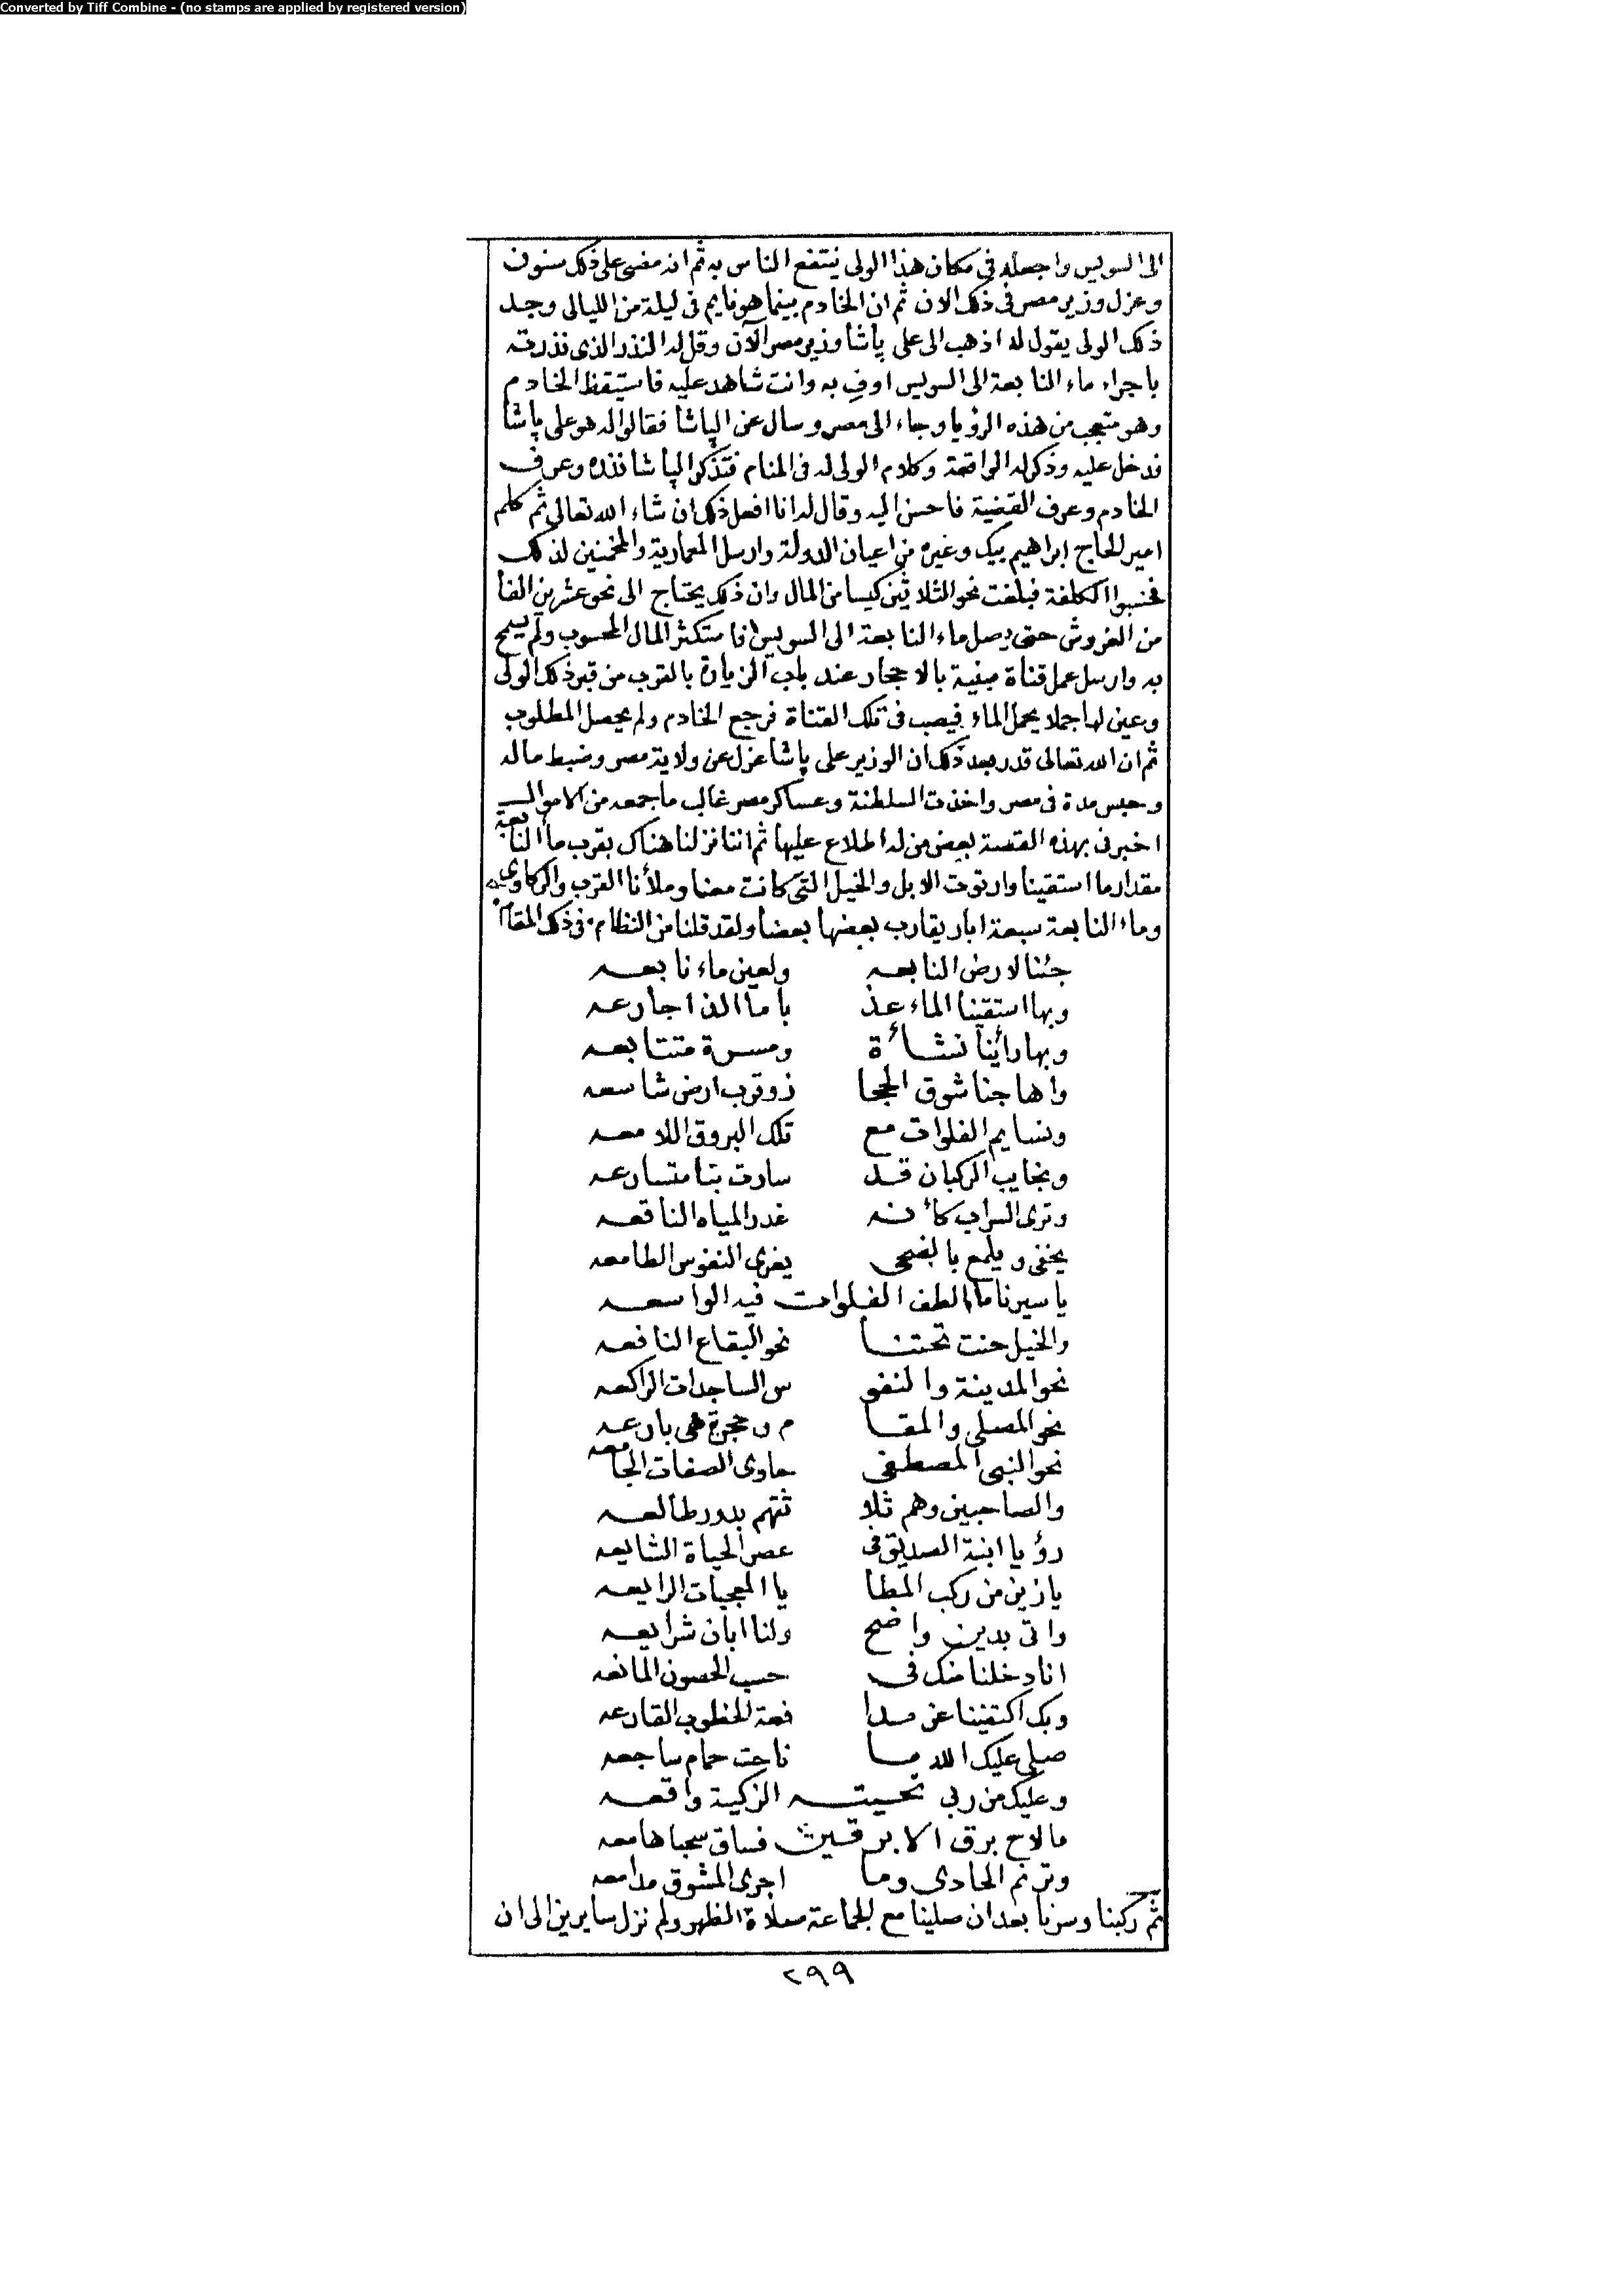 Converted by Tiff Combine - (no stamps are applied by registered version)
الى السويس واجعله في مكان هذا الولى ينتفع الناس به ثم انه مضى على ذلك سنون
وعزل وزير مصر فى ذلك الان ثم ان الخادم بينما هو نايم فى ليلة من الليالى وجد
ذلك الولى يقول له اذهب الى على پاشا وزير مصر الآن وقل له النذر الذى نذرته
باجراء ماء النابعة الى السويس اوفِ به وانت شاهد عليه فاستيقظ الخادم
وهو متعجب من هذه الرؤيا وجاء الى مصر وسال عن الپاشا فقالوا له هو على پاشا
فدخل عليه وذكر له الواقعة وكلام الولى له فى المنام فتذكر الپاشا نذره وعرف
الخادم وعرف القضية فاحسن اليه وقال له انا افعل ذلك ان شاء الله تعالى ثم كلم
امير الحاج ابراهيم بيك وغيره من اعيان الدولة وارسل المعمارية والمخمنين لذلك
فحسبوا الكلفة فبلغت نحو الثلاثين كيسا من المال وان ذلك يحتاج الى نحو عشرين الفا
من الغروش حتى يصل ماء النابعة الى السويس فاستكثر المال المحسوب ولم يسمح
به وارسل عمل قناة مبنية بالاحجار عند باب الزيارة بالقرب من قبر ذلك الولى
وعين لها جملا يحمل الماء فيصب فى تلك القناة فرجع الخادم ولم يحصل المطلوب
ثم ان الله تعالى قدر بعد ذلك ان الوزير على پاشا عزل عن ولاية مصر وضبط ماله
وحبس مدة فى مصر واخذت السلطنة وعساكر مصر غالب ما جمعه من الاموال
اخبرنى بهذه القصة بعض من له اطلاع عليها ثم اننا نزلنا هناك بقرب ماء النابعة
مقدار ما استقينا وارتوت الابل والخيل التى كانت معنا وملأنا القرب والركاوى
وماء النابعة سبعة ابار يقارب بعضها بعضا ولقد قلنا من النظام فى ذلك المقام
جئنا لارض النابعه ولعين ماء نابعه
وبها استقينا الماء عذ با ما الذ اجارعه
وبها رأينا نشأة ومسرة متتابعه
واهاجنا شوق الحجا ز وقرب ارض شاسعه
ونسايم الفلوات مع تلك البروق اللامعه
ونجايب الركبان قد سارت بنا متسارعه
وترى السراب كأنه غدر المياه الناقعه
يخفى ويلمع بالضحى يغرى النفوس الطامعه
يا سيرنا ما الطف الفلوات فيه الواسعه
والخيل حنت تحتنا نحو البقاع النافعه
نحو المدينة والنفو س الساجدات الراكعه
نحو المصلى والمقا م وحجرة هى بارعه
نحو النبى المصطفى حاوى الصفات الجامعه
والصاحبين وهم ثلا ثتهم بدور طالعه
رؤيا ابنة الصديق فى عصر الحياة الشايعه
يا زين من ركب المطا يا المعجبات الرايعه
واتى بدين واضح ولنا ابان شرايعه
انا دخلنا منك فى حسب الحصون المانعه
وبك اكتفينا عن مدا فعة الخطوب القارعه
صلى عليك الله ما ناحت حمام ساجعه
وعليك من ربى تحيته الزكية واقعه
ما لاح برق الابرقين فساق سحبا هامعه
وترنم الحادى وما اجرى المشوق مدامعه
ثم ركبنا وسرنا بعد ان صلينا مع الجماعة صلاة الظهر ولم نزل سايرين الى ان
٢٩٩